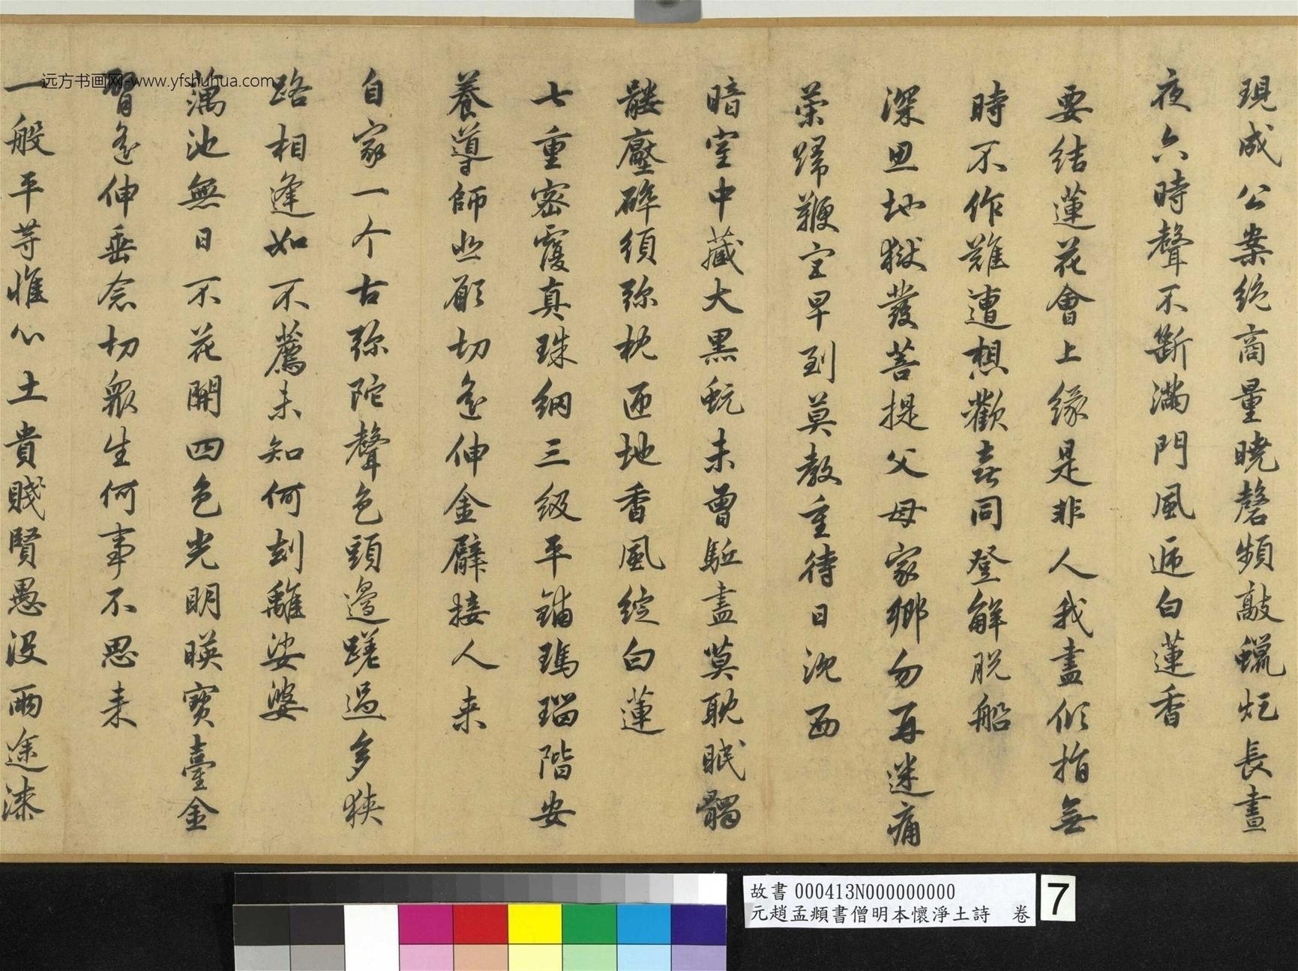 現成公案絶商量曉磬頻敲蠟炬長晝
夜六時聲不斷滿門風遞白蓮香
要結蓮花會上緣是非人我盡傾捐無
時不作難遭想歡喜同登解脱船
深思地獄發菩提父母家鄉勿再迷痛
策歸鞭宜早到莫教重待日沈西
暗室中藏大黑蚖未曾驅盡莫耽眠髑
髏壓碎須弥枕匝地香風綻白蓮
七重密覆真珠網三级平鋪瑪瑙階安
養導師悲願切遙伸金臂接人来
自家一个古弥陀聲色頭邊蹉過多狹
路相逢如不薦未知何刦離娑婆
藕池無日不花開四色光明暎寳臺金
臂遙伸垂念切衆生何事不思来
一般平等惟心土貴賤賢愚没兩途漆
远方书画网-www.yfshuhua.com
故書 000413N000000000
元趙孟頫書僧明本懷淨土詩 卷
7